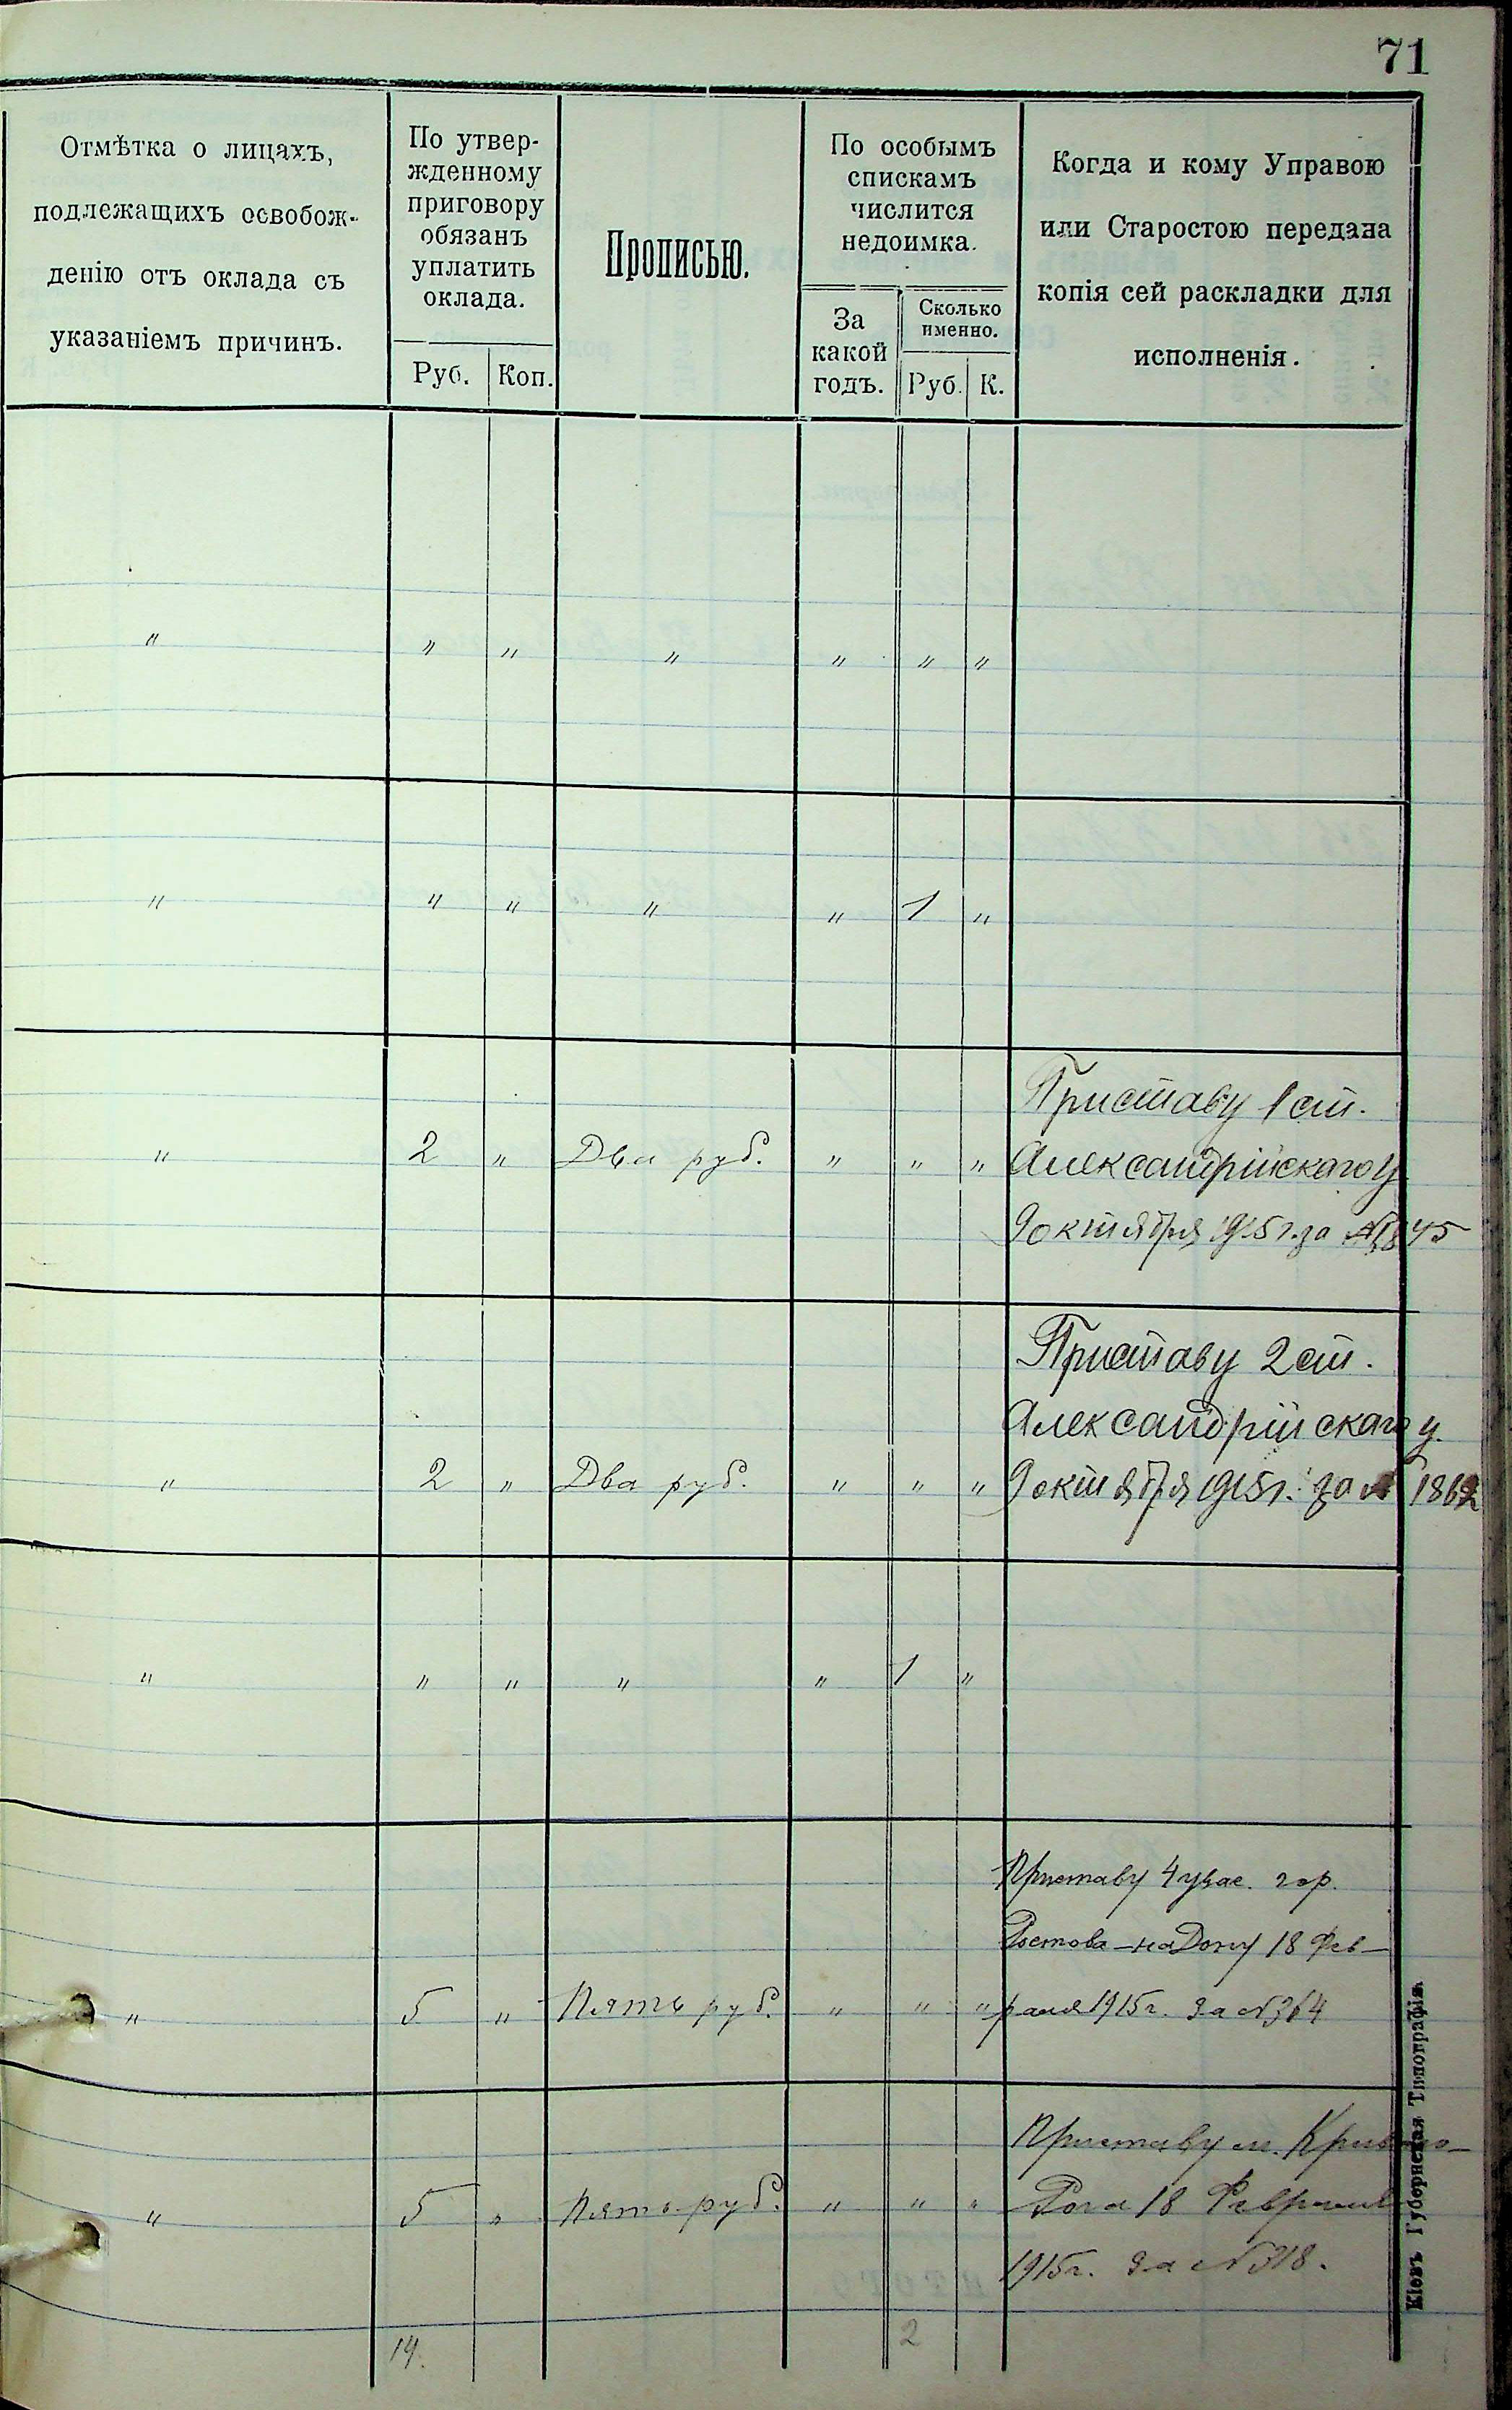 71
Отмѣтка о лицахъ,
подлежащихъ освобож-
денію отъ оклада съ
указаніемъ причинъ.
По утвер-
жденному
приговору
обязанъ
уплатить
оклада.
Руб. Коп.
Прописью.
По особымъ
спискамъ
числится
недоимка.
За
какой
годъ.
Сколько
именно.
Руб. К.
Когда и кому Управою
или Старостою передана
копія сей раскладки для
исполненія.
" " " " " " "
" " " " " 1 "
Приставу 1 ст.
" 2 " Два руб. " " " Александрійскаго у.
9 октября 1915 г. за № 1845
Приставу 2 ст.
Александрійскаго у.
" 2 " Два руб. " " " 9 октября 1915 г. за № 1862
" " " " " 1 "
Приставу 4 учас. гор.
Ростова-на Дону 18 Фев-
" 5 " Пять руб. " " " раля 1915 г. за № 364
Приставу м. Кривого-
" 5 " Пять руб. " " " Рога 18 Февраля
1915 г. за № 318.
14. 2
Кіевъ Губернская Типографія.